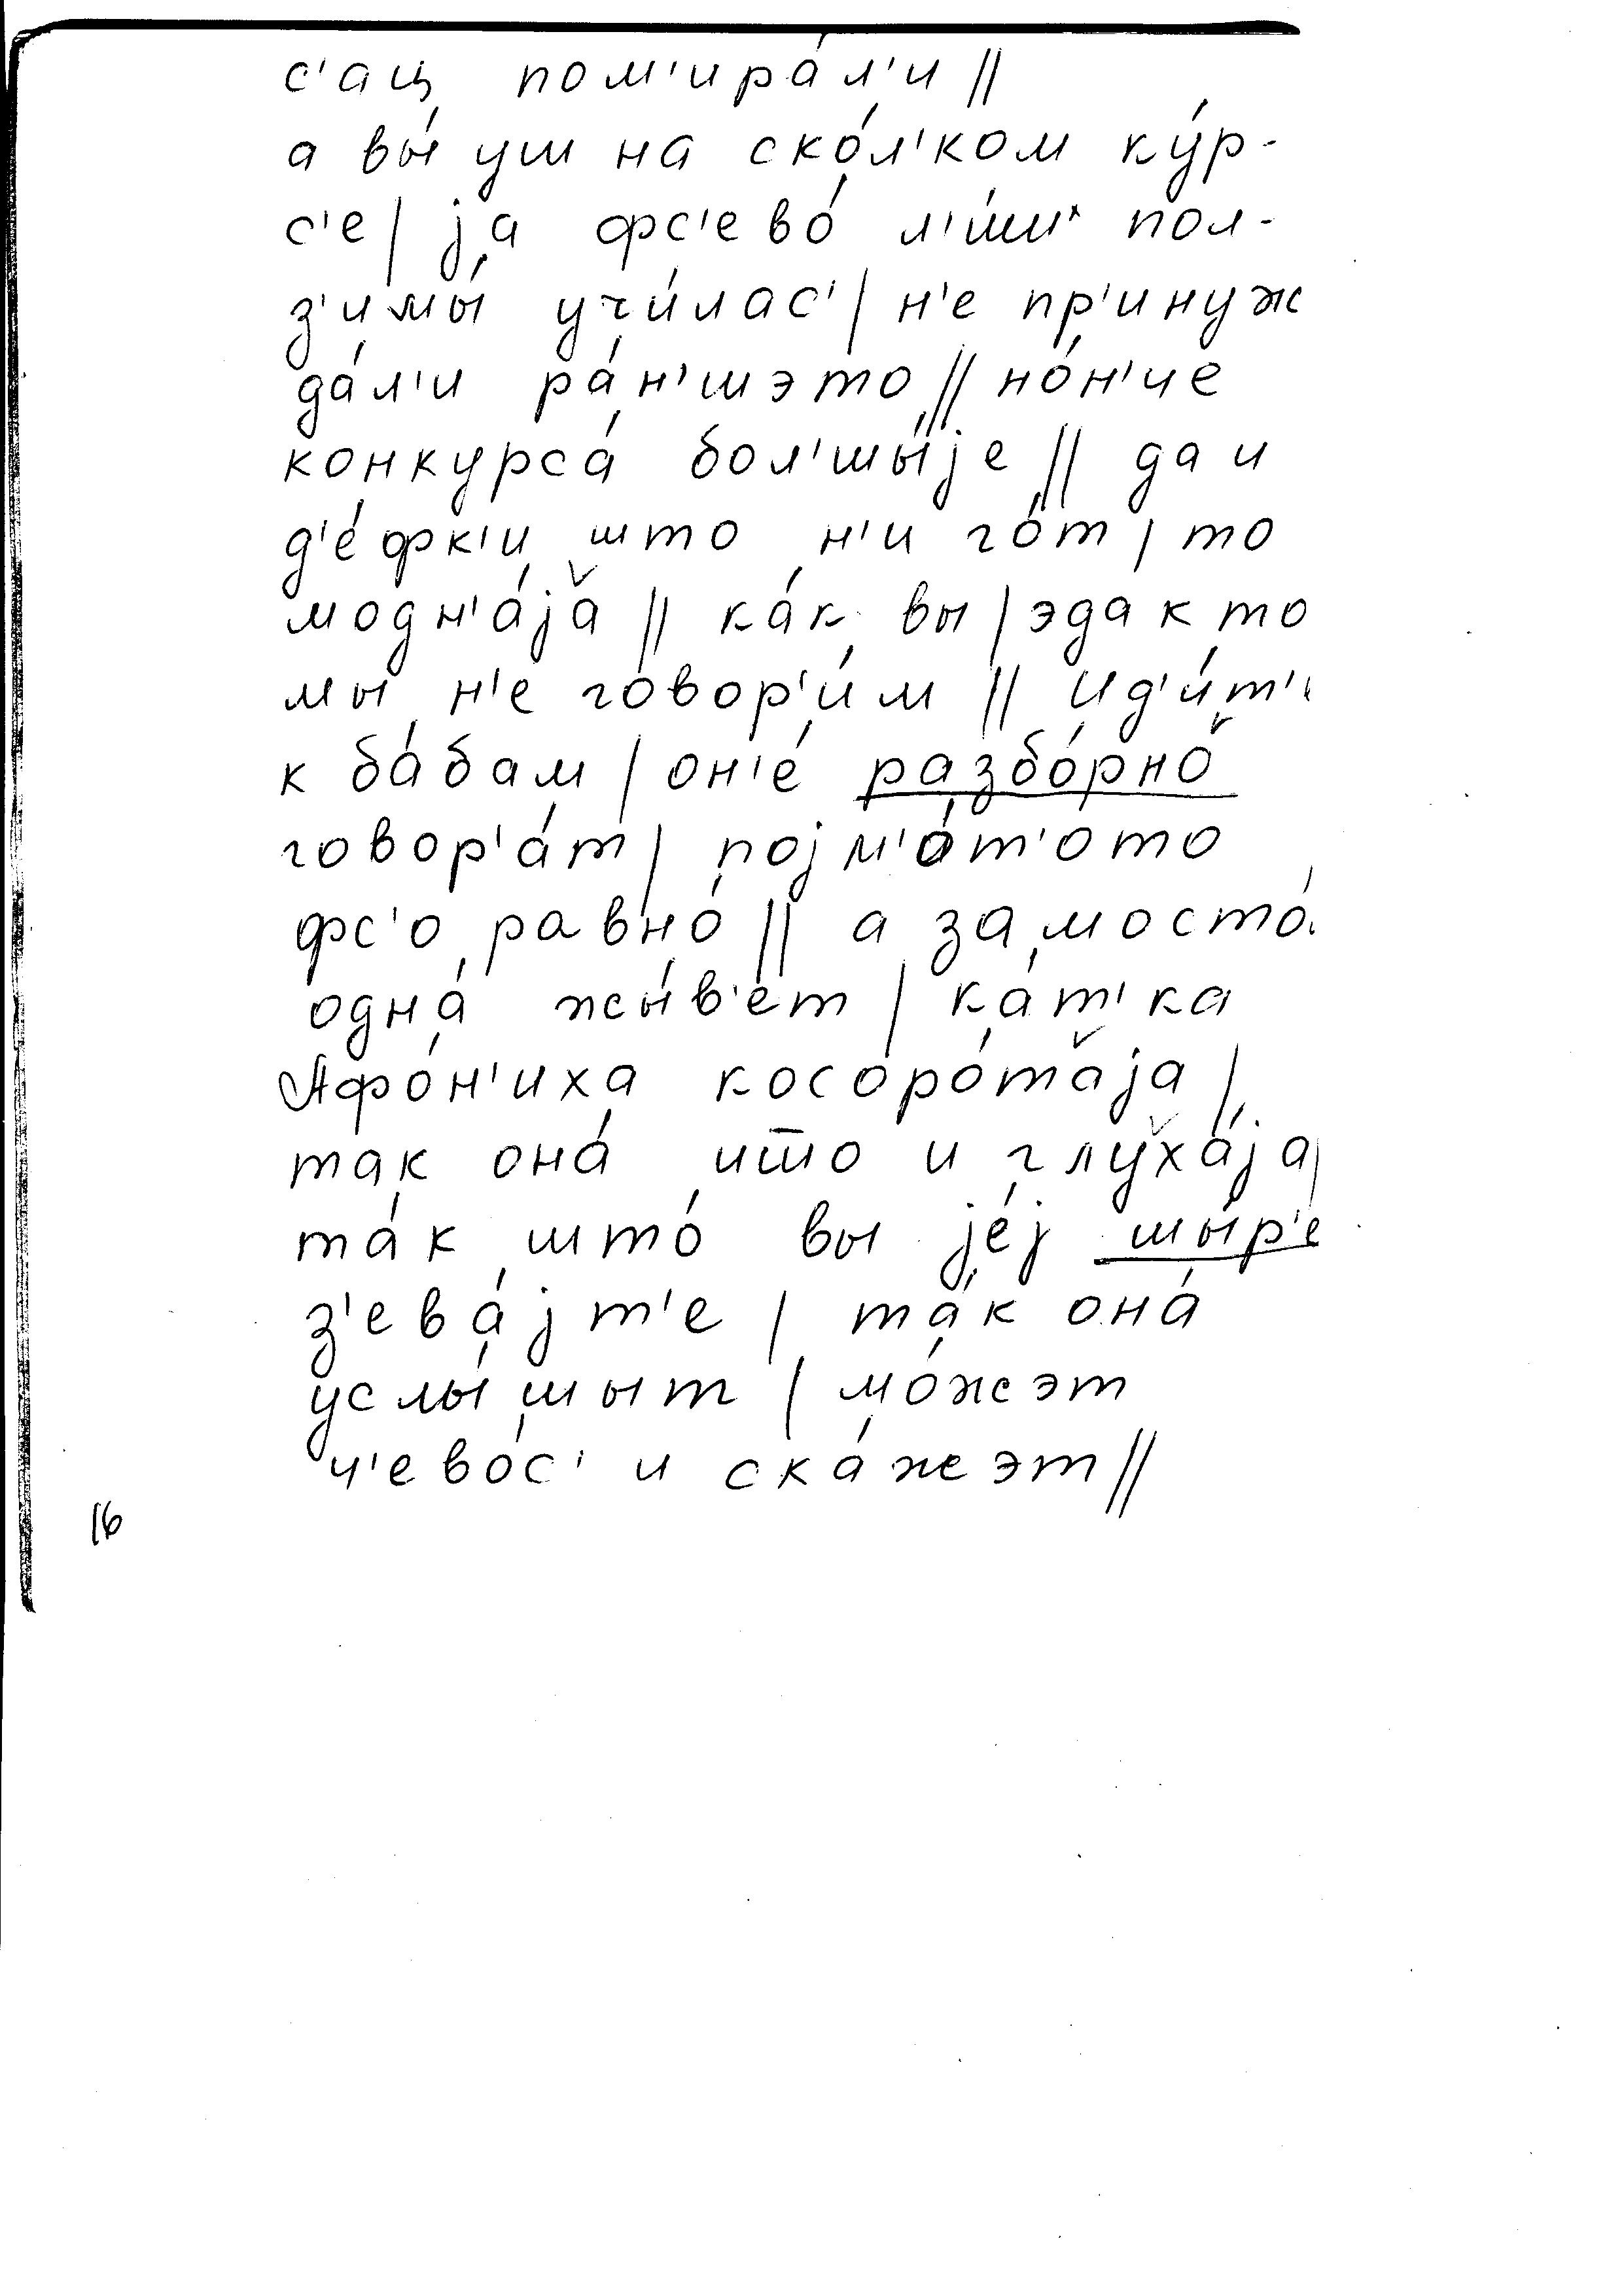 с'ац пом'ира́л'и ||
а вы́ уш на ско́л'ком ку́р-
с'е | jа фс'ево́ пол-
з'имы́ учи́лас' | н'е пр'инуж
да́л'и ра́н'шэто || но́н'че
конкурса́ бол'шы́jе || да и
д'е́фк'и што н'и го́т | то
модн'а́jа̌ || ка́к вы | эдак то
мы н'е говор'и́м || Ид'и́т'и
к ба́бам | он'е́ разбо́рно̌
говор'а́т | поjм'о́т'ото
фс'о равно́ || а за мосто́
одна́ жы́в'е́т | ка́т'ка
Афо́н'иха косоро́та̌jа |
так она́ што и глу̌ха́jа |
та́к што́ вы jе́j шы́р'е
з'ева́jт'е | та́к она́
услы́шыт | мо́жэт
ч'ево́с' и ска́жэт ||
16